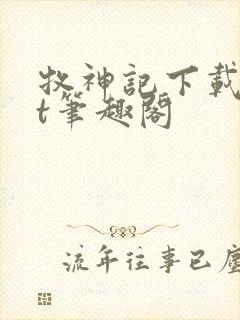 牧神記下載
t筆趣閣
流年往事已塵